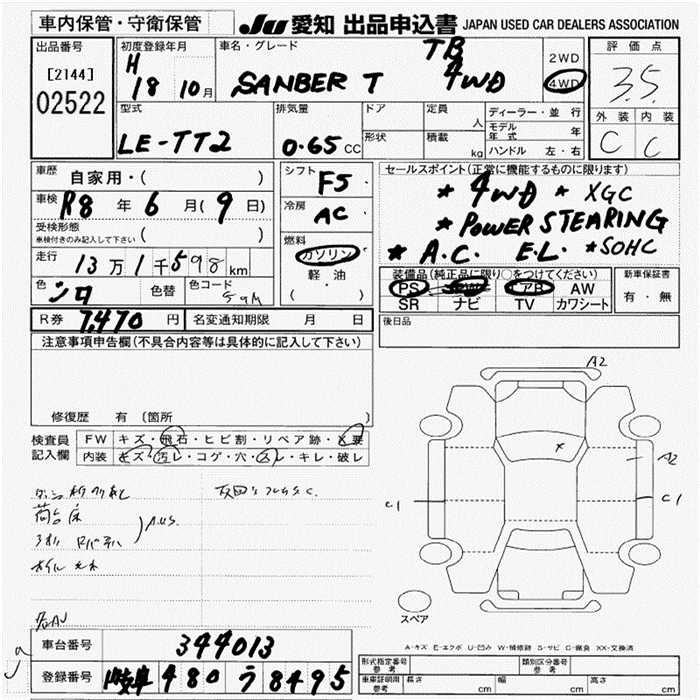 車内保管・守衛保管
JU 愛知 出品申込書 JAPAN USED CAR DEALERS ASSOCIATION
出品番号
[2144]
02522
初度登録年月
H
18 10月
車名・グレード
TB
SANBER T 4WD
2WD
4WD
評価点
3.5
外装 内装
C C
型式
LE-TT2
排気量
0.65 CC
ドア
形状
定員
人
積載
kg
ディーラー・並行
モデル年式 年
ハンドル 左・右
車歴
自家用・( )
車検
R8 年 6 月(9日)
受検形態
車検付きのみ記入して下さい ( )
走行
13万1千598km
色
シロ
色替
色コード
R券 7,470 円
名変通知期限 月 日
シフト
F5
冷房
AC
燃料
ガソリン
軽油
( )
セールスポイント(正常に機能するものに限ります)
* 4WD * XGC
* POWER STEARING
* A.C. E.L. *SOHC
装備品(純正品に限り○をつけてください)
PS エアB AW
SR ナビ TV カワシート
新車保証書
有・無
後日品
注意事項申告欄(不具合内容等は具体的に記入して下さい)
修復歴 有 (箇所 )
検査員記入欄
FW キズ・飛石・ヒビ割・リペア跡・X要
内装 キズ・汚レ・コゲ・穴・スレ・キレ・破レ
荷台床
A2
A2
C1
C1
x
スペア
A-キズ E-エクボ U-凹み W-補修跡 S-サビ C-腐食 XX-交換済
車台番号 344013
登録番号 岐阜 480 ラ 8495
形式指定番号
参考
類別区分番号
参考
車庫証明用
参考
長さ cm
幅 cm
高さ cm